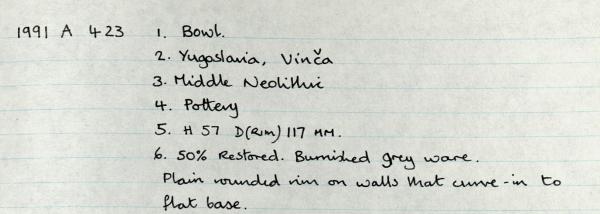 1991 A 423 1. Bowl.
2. Yugoslavia, Vinča
3. Middle Neolithic
4. Pottery
5. H 57 D(Rim) 117 MM.
6. 50% Restored. Burnished grey ware.
Plain rounded rim on walls that curve-in to
flat base.